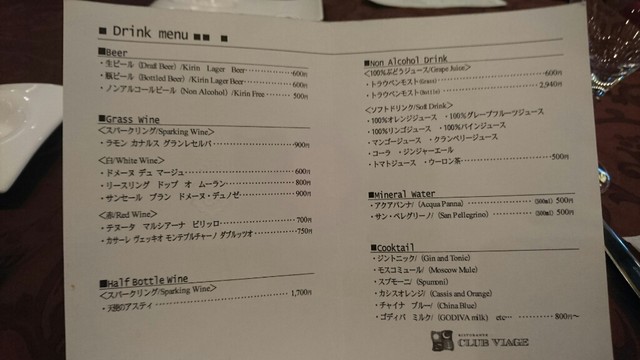 ■ Drink menu ■■ ■
■Beer
・生ビール (Draft Beer) /Kirin Lager Beer……………600円
・瓶ビール (Bottled Beer) /Kirin Lager Beer……………600円
・ノンアルコールビール (Non Alcohol) /Kirin Free………500円
■Grass Wine
<スパークリング/Sparking Wine>
・ラモン カナルス グランレセルバ……………………900円
<白/White Wine>
・ドメーヌ デュ マージュ……………………………600円
・リースリング ドップ オ ムーラン…………………800円
・サンセール ブラン ドメーヌ・デュノゼ……………900円
<赤/Red Wine>
・テヌータ マルシアーナ ピリッロ……………………700円
・カサーレ ヴェッキオ モンテプルチャーノ ダブルッツオ………750円
■Half Bottle Wine
<スパークリング/Sparking Wine>
・天使のアスティ……………………………………1,700円
■Non Alcohol Drink
<100%ぶどうジュース/Grape Juice>
・トラウベンモスト(Grass)……………………………600円
・トラウベンモスト(Bottle)……………………………2,940円
<ソフトドリンク/Soft Drink>
・100%オレンジジュース ・100%グレープフルーツジュース
・100%リンゴジュース ・100%パインジュース
・マンゴージュース ・クランベリージュース
・コーラ ・ジンジャーエール
・トマトジュース ・ウーロン茶……………………500円
■Mineral Water
・アクアパンナ/ (Acqua Panna) ……………(500ml) 500円
・サン・ペレグリーノ/ (San Pellegrino) …………(500ml) 500円
■Cooktail
・ジントニック/ (Gin and Tonic)
・モスコミュール/ (Moscow Mule)
・スプモーニ/ (Spumoni)
・カシスオレンジ/ (Cassis and Orange)
・チャイナ ブルー/ (China Blue)
・ゴディバ ミルク/ (GODIVA milk) etc… …………800円~
RISTORANTE
CLUB VIAGE